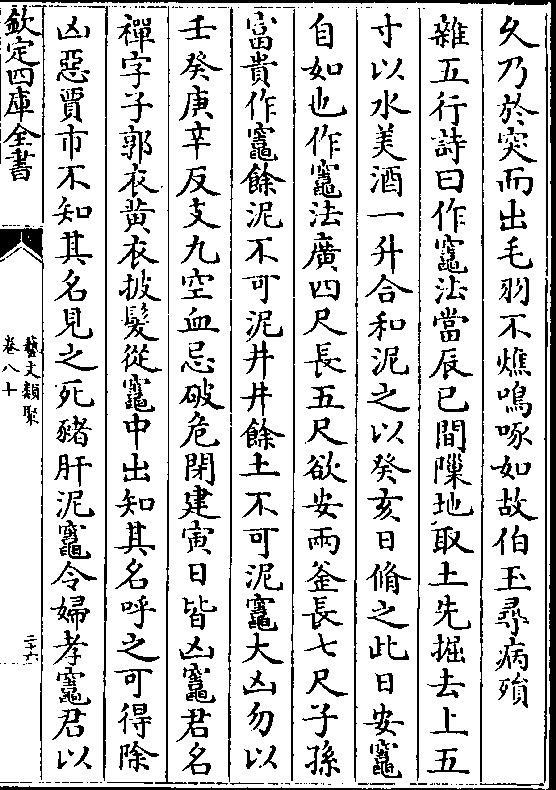 久乃於突而出毛羽不燋鳴啄如故伯玉尋病殞
雜五行詩曰作竈法當辰巳間隟地取土先掘去上五
寸以水美酒一升合和泥之以癸亥日脩之此日安竈
自如也作竈法廣四尺長五尺欲安兩釜長七尺子孫
富貴作竈餘泥不可泥井井餘土不可泥竈大凶勿以
壬癸庚辛反支九空血忌破危閉建寅日皆凶竈君名
禪字子郭衣黄衣披髮從竈中出知其名呼之可得除
凶惡賈市不知其名見之死豬肝泥竈令婦孝竈君以
欽定四庫全書
藝文類聚
卷八十
二十六